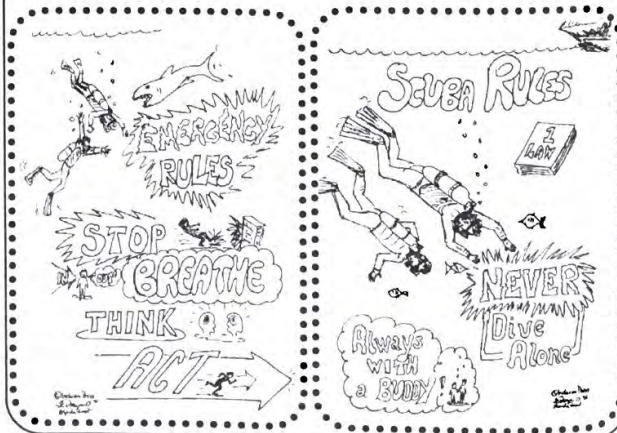 EMERGENCY
RULES
STOP
IN OUT
BREATHE
THINK
ACT
SCUBA RULES
1
LAW
NEVER
Dive
Alone
Always
WITH
a BUDDY